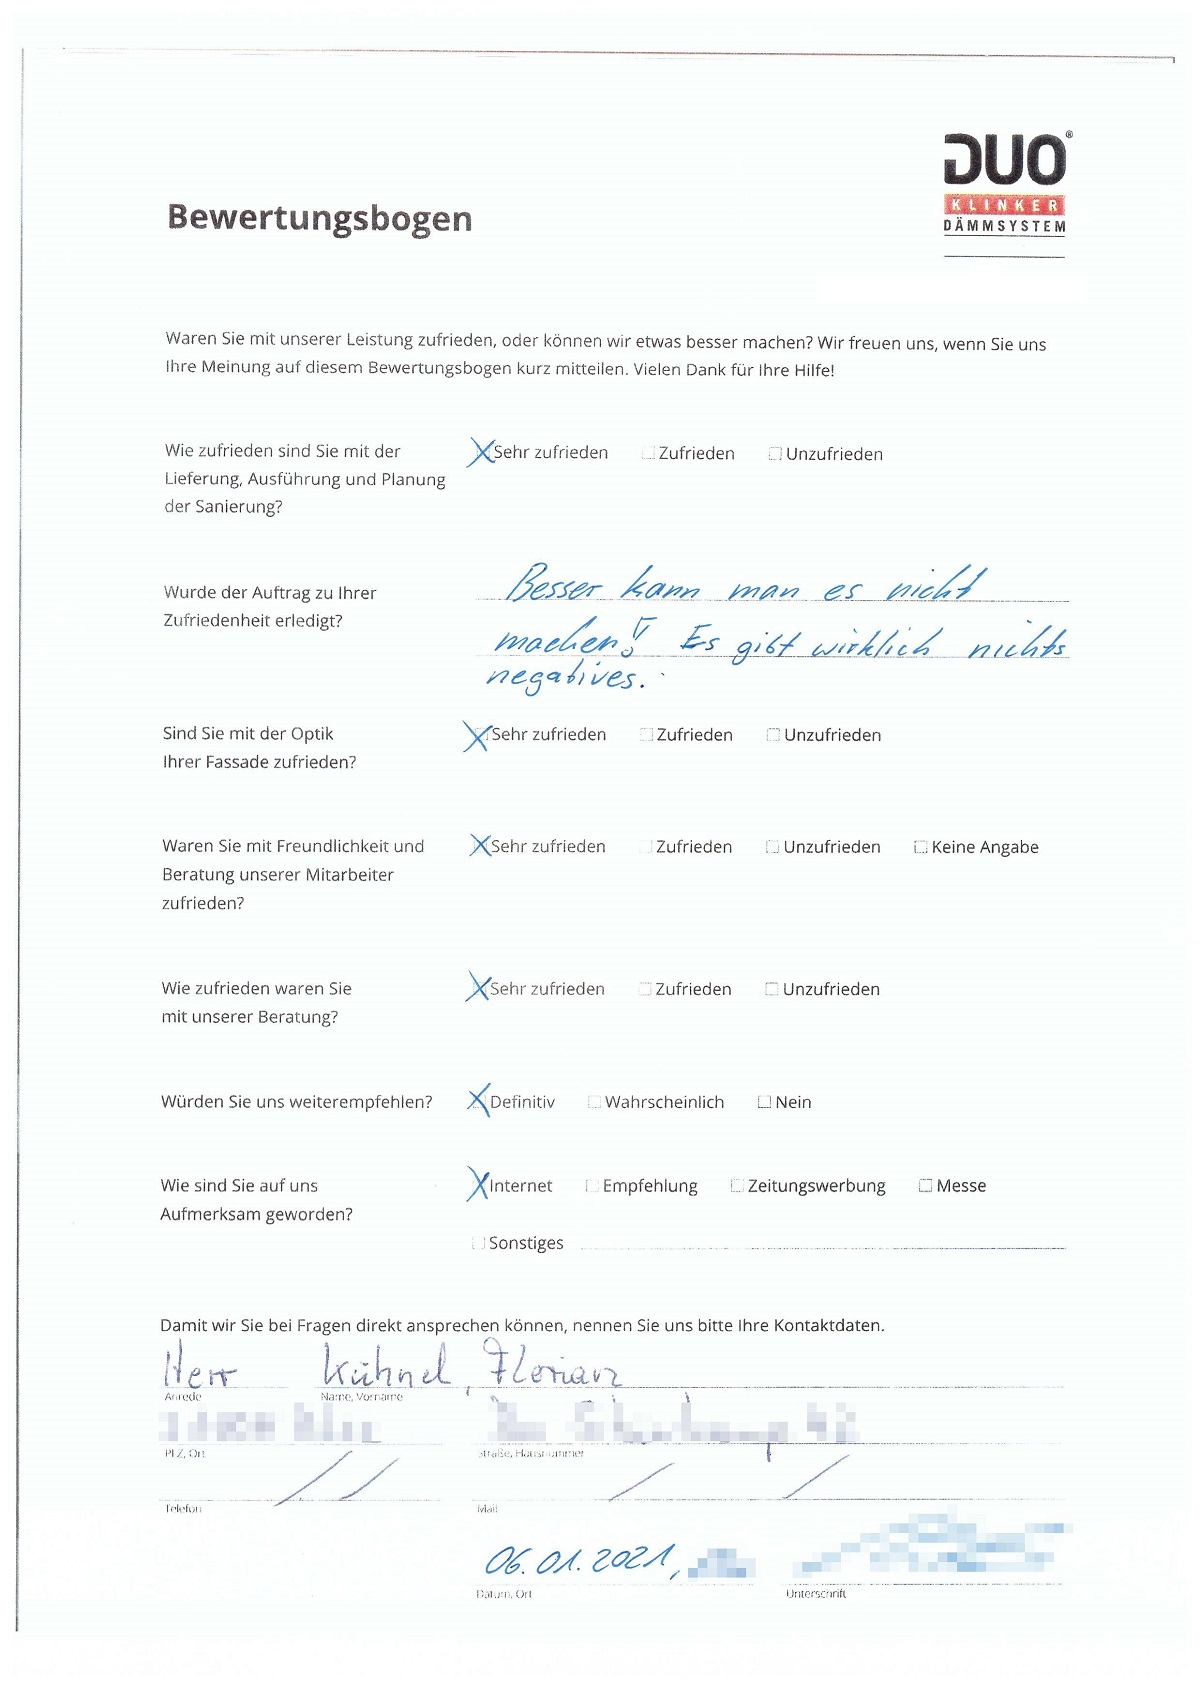 DUO®
KLINKER
DÄMMSYSTEM
Bewertungsbogen
Waren Sie mit unserer Leistung zufrieden, oder können wir etwas besser machen? Wir freuen uns, wenn Sie uns
Ihre Meinung auf diesem Bewertungsbogen kurz mitteilen. Vielen Dank für Ihre Hilfe!
Wie zufrieden sind Sie mit der
Lieferung, Ausführung und Planung
der Sanierung?
Sehr zufrieden Zufrieden Unzufrieden
Wurde der Auftrag zu Ihrer
Zufriedenheit erledigt?
Besser kann man es nicht
machen! Es gibt wirklich nichts
negatives.
Sind Sie mit der Optik
Ihrer Fassade zufrieden?
Sehr zufrieden Zufrieden Unzufrieden
Waren Sie mit Freundlichkeit und
Beratung unserer Mitarbeiter
zufrieden?
Sehr zufrieden Zufrieden Unzufrieden Keine Angabe
Wie zufrieden waren Sie
mit unserer Beratung?
Sehr zufrieden Zufrieden Unzufrieden
Würden Sie uns weiterempfehlen?
Definitiv Wahrscheinlich Nein
Wie sind Sie auf uns
Aufmerksam geworden?
Internet Empfehlung Zeitungswerbung Messe
Sonstiges
Damit wir Sie bei Fragen direkt ansprechen können, nennen Sie uns bitte Ihre Kontaktdaten.
Herr Kühnel, Florian
Anrede Name, Vorname
PLZ, Ort Straße, Hausnummer
Telefon Mail
06.01.2021,
Datum, Ort Unterschrift